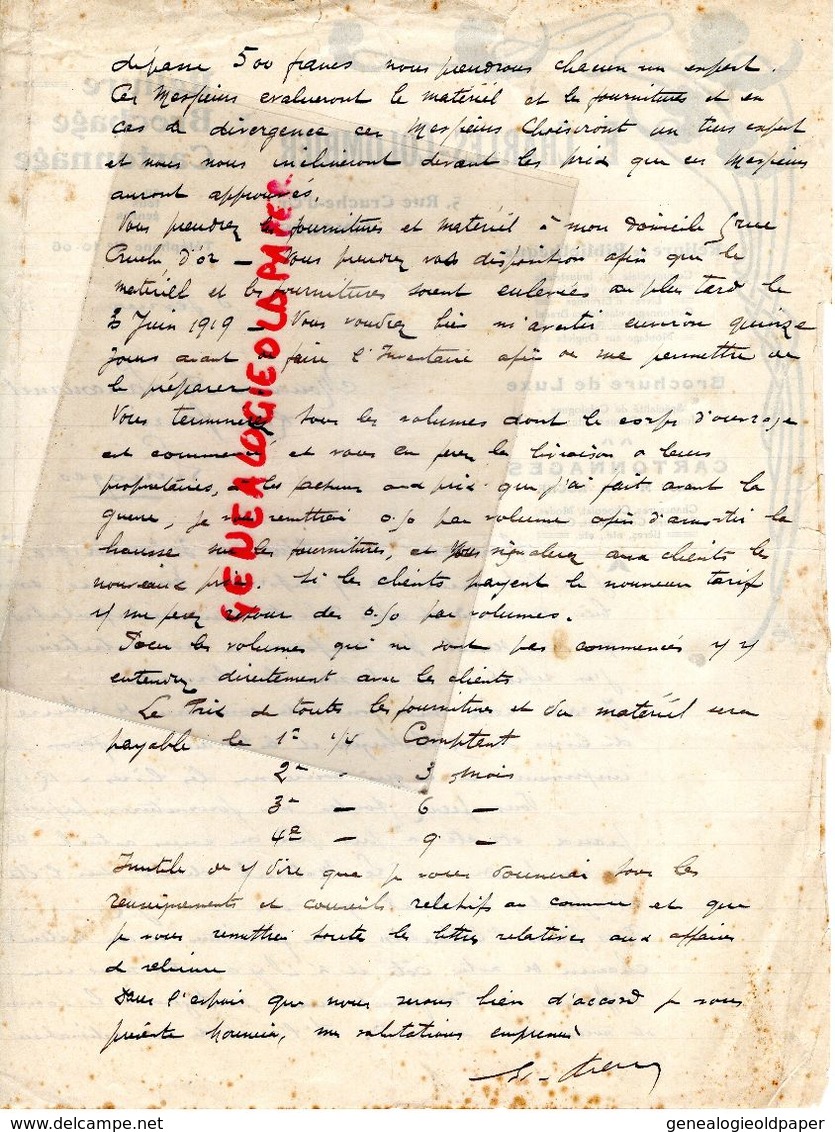 dépasse 500 francs nous prendrons chacun un expert.
Ces Messieurs évalueront le matériel et les fournitures et en
cas de divergence ces Messieurs choisiront un tiers expert
et nous nous inclinerons devant les prix que ces Messieurs
auront approuvés.
Vous prendrez les fournitures et matériel à mon domicile 5 rue
Cruche d'or — Vous prendrez vos dispositions afin que le
matériel et les fournitures soient enlevées au plus tard le
Juin 1919 — Vous voudrez bien m'avertir environ quinze
jours avant de faire l'Inventaire afin de me permettre de
le préparer
Vous terminerez tous les volumes dont le corps d'ouvrage
est commencé et vous en ferez la livraison a leurs
propriétaires, les factures aux prix que j'ai fait avant la
guerre, je vous remettrai 0.50 par volume afin d'amortir la
hausse sur les fournitures, et vous signalerez aux clients les
nouveaux prix. Si les clients payent le nouveau tarif
me ferez retour des 0.50 par volumes.
Pour les volumes qui ne sont pas commencés
entendrez directement avec les clients
Le Prix de toutes les fournitures et du matériel sera
payable le 1er 1/4 Comptant
2e — 3 mois
3e — 6 —
4e — 9 —
Inutile de dire que je vous donnerai tous les
renseignements et conseils relatifs au commerce et que
je vous remettrai toutes les lettres relatives aux affaires
de reliure
Dans l'espoir que nous serons bien d'accord je vous
présente Monsieur, mes salutations empressées
GENEALOGIEOLDPAPER
genealogieoldpaper